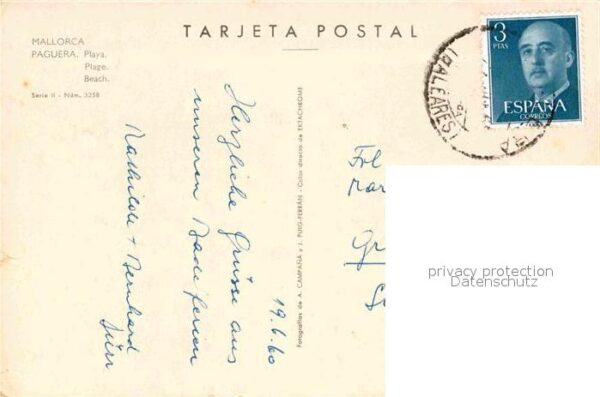 TARJETA POSTAL
MALLORCA
PAGUERA. Playa.
Plage.
Beach.
Serie II - Núm. 3258
19.6.60
Herzliche Grüsse aus
unseren Badeferien
Mathilde + Bernhard
Dürr
Fotografías de A. CAMPAÑA y J. PUIG-FERRÁN - Color directo de EKTACHROME
3
PTAS
ESPAÑA
CORREOS
(BALEARES)
Frl
Mar
Gr
privacy protection
Datenschutz